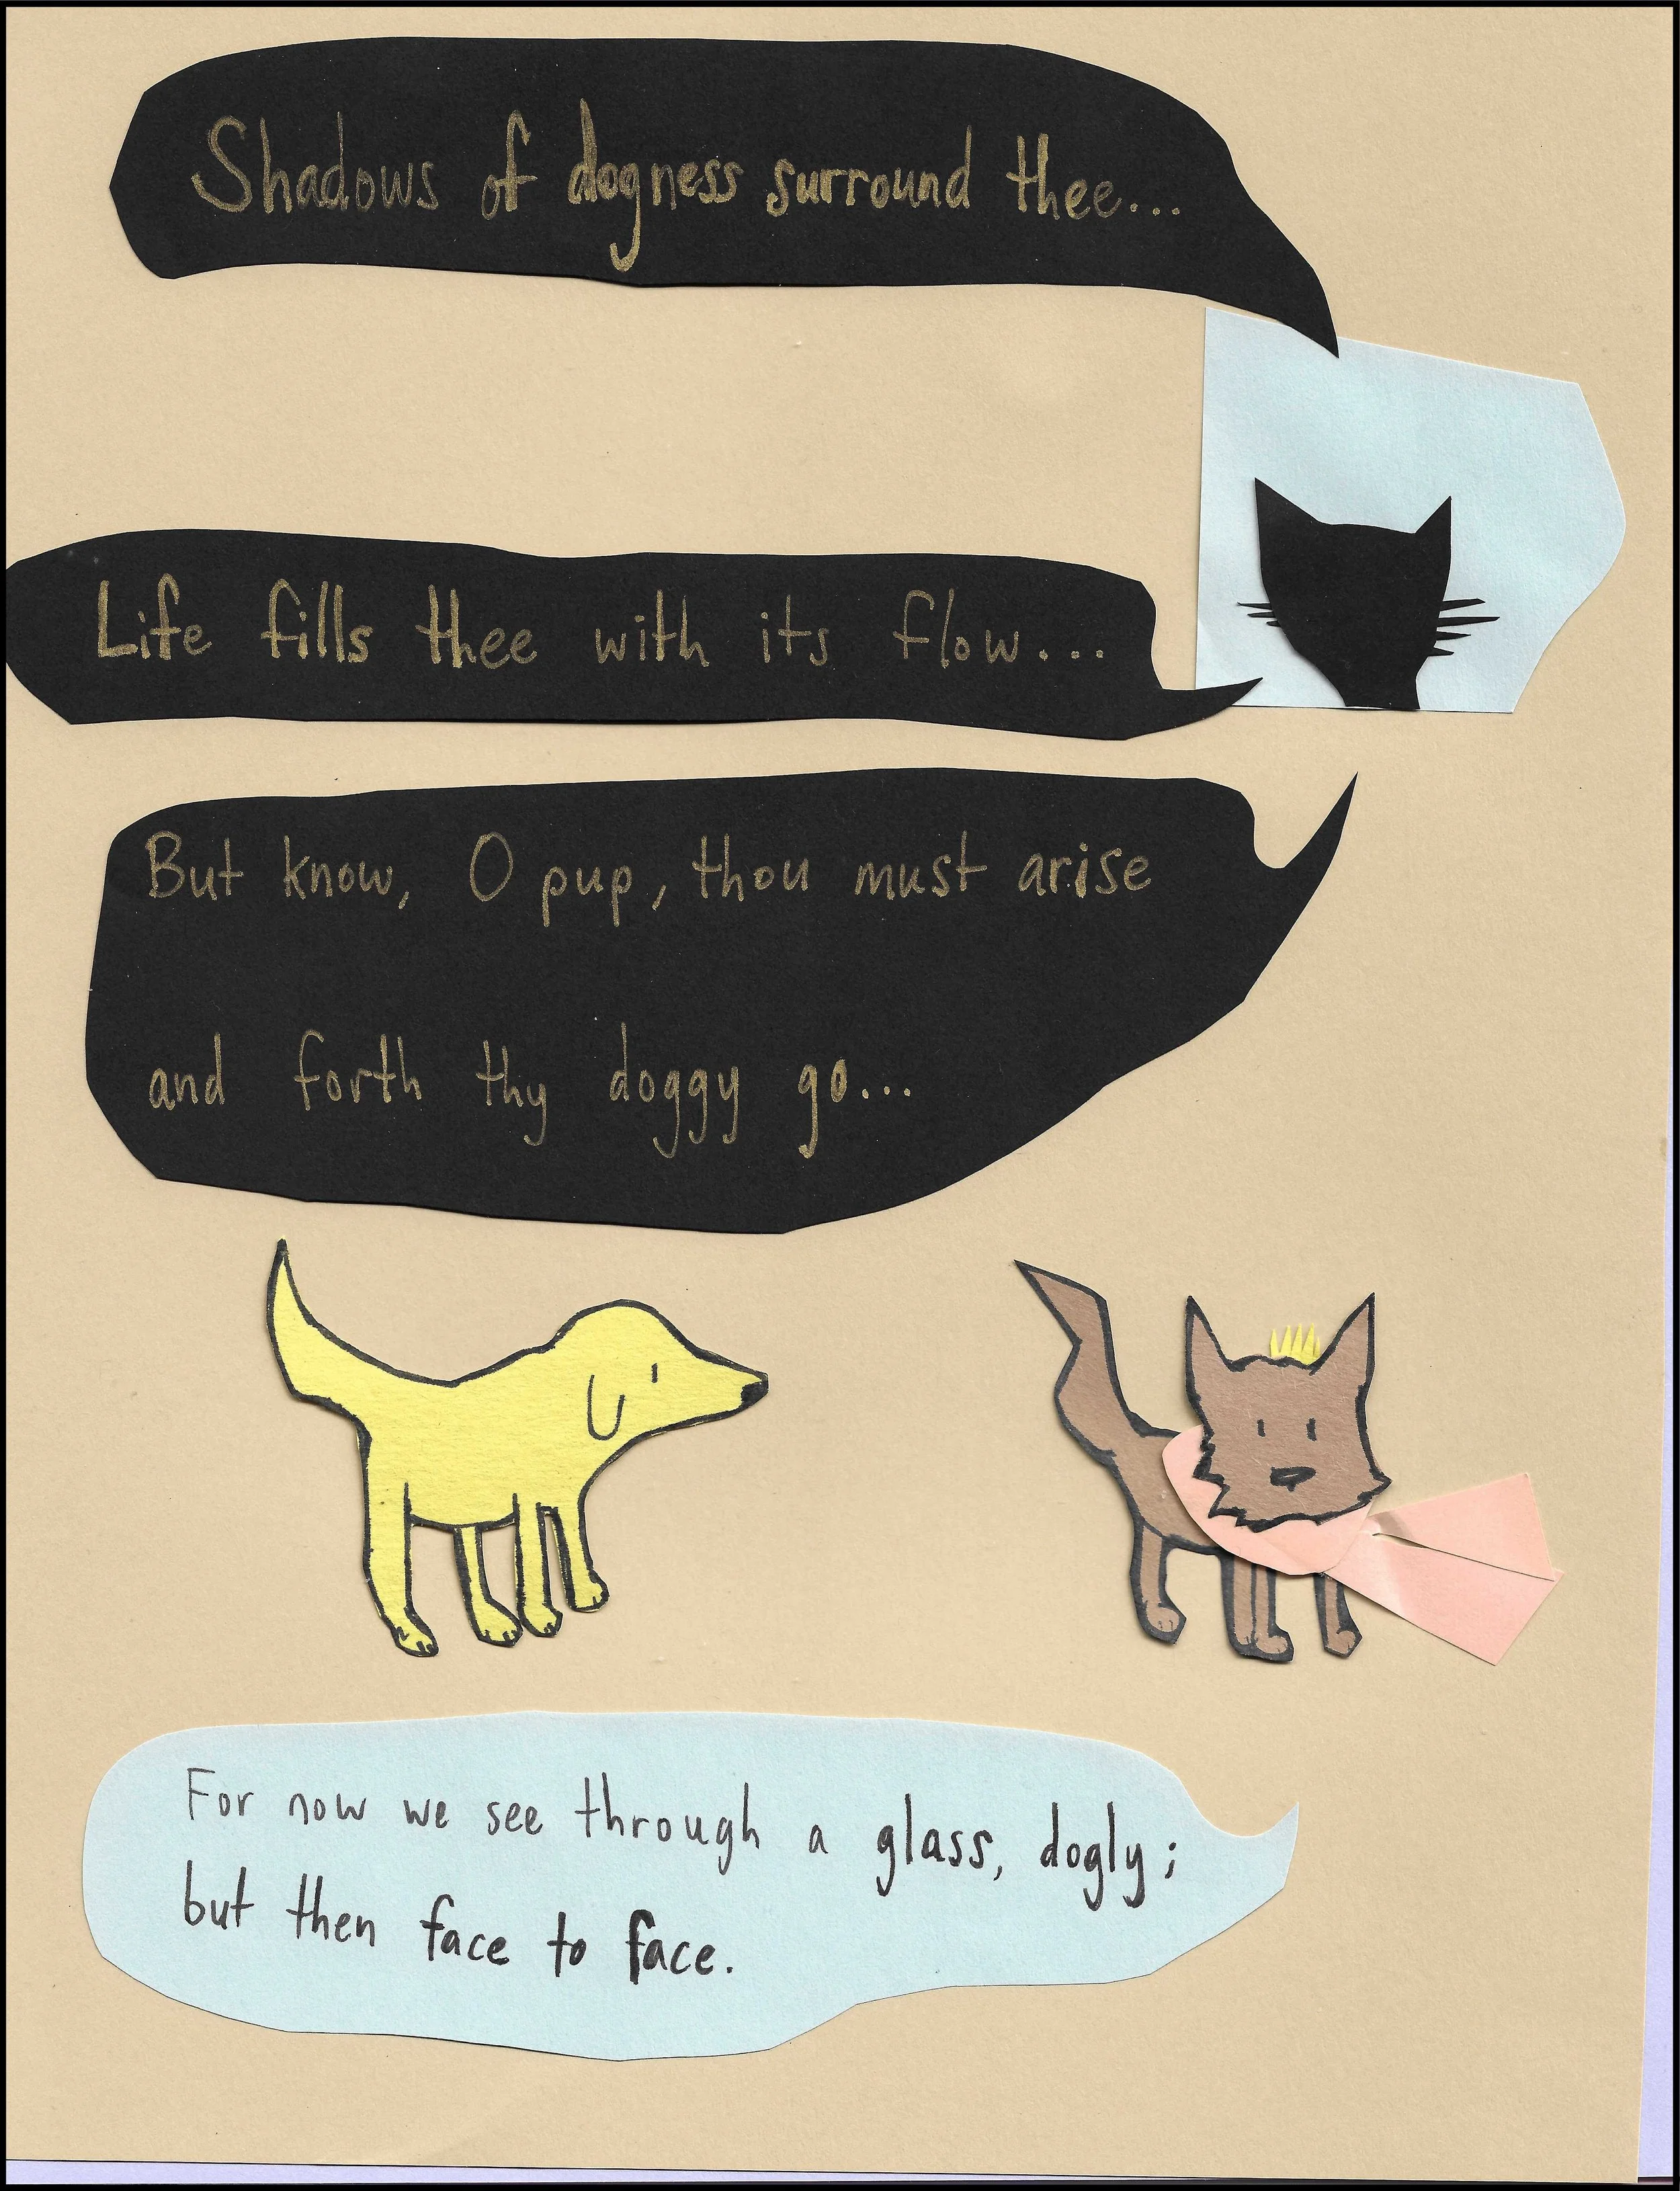 Shadows of dogness surround thee...
Life fills thee with its flow...
But know, O pup, thou must arise
and forth thy doggy go...
For now we see through a glass, dogly;
but then face to face.